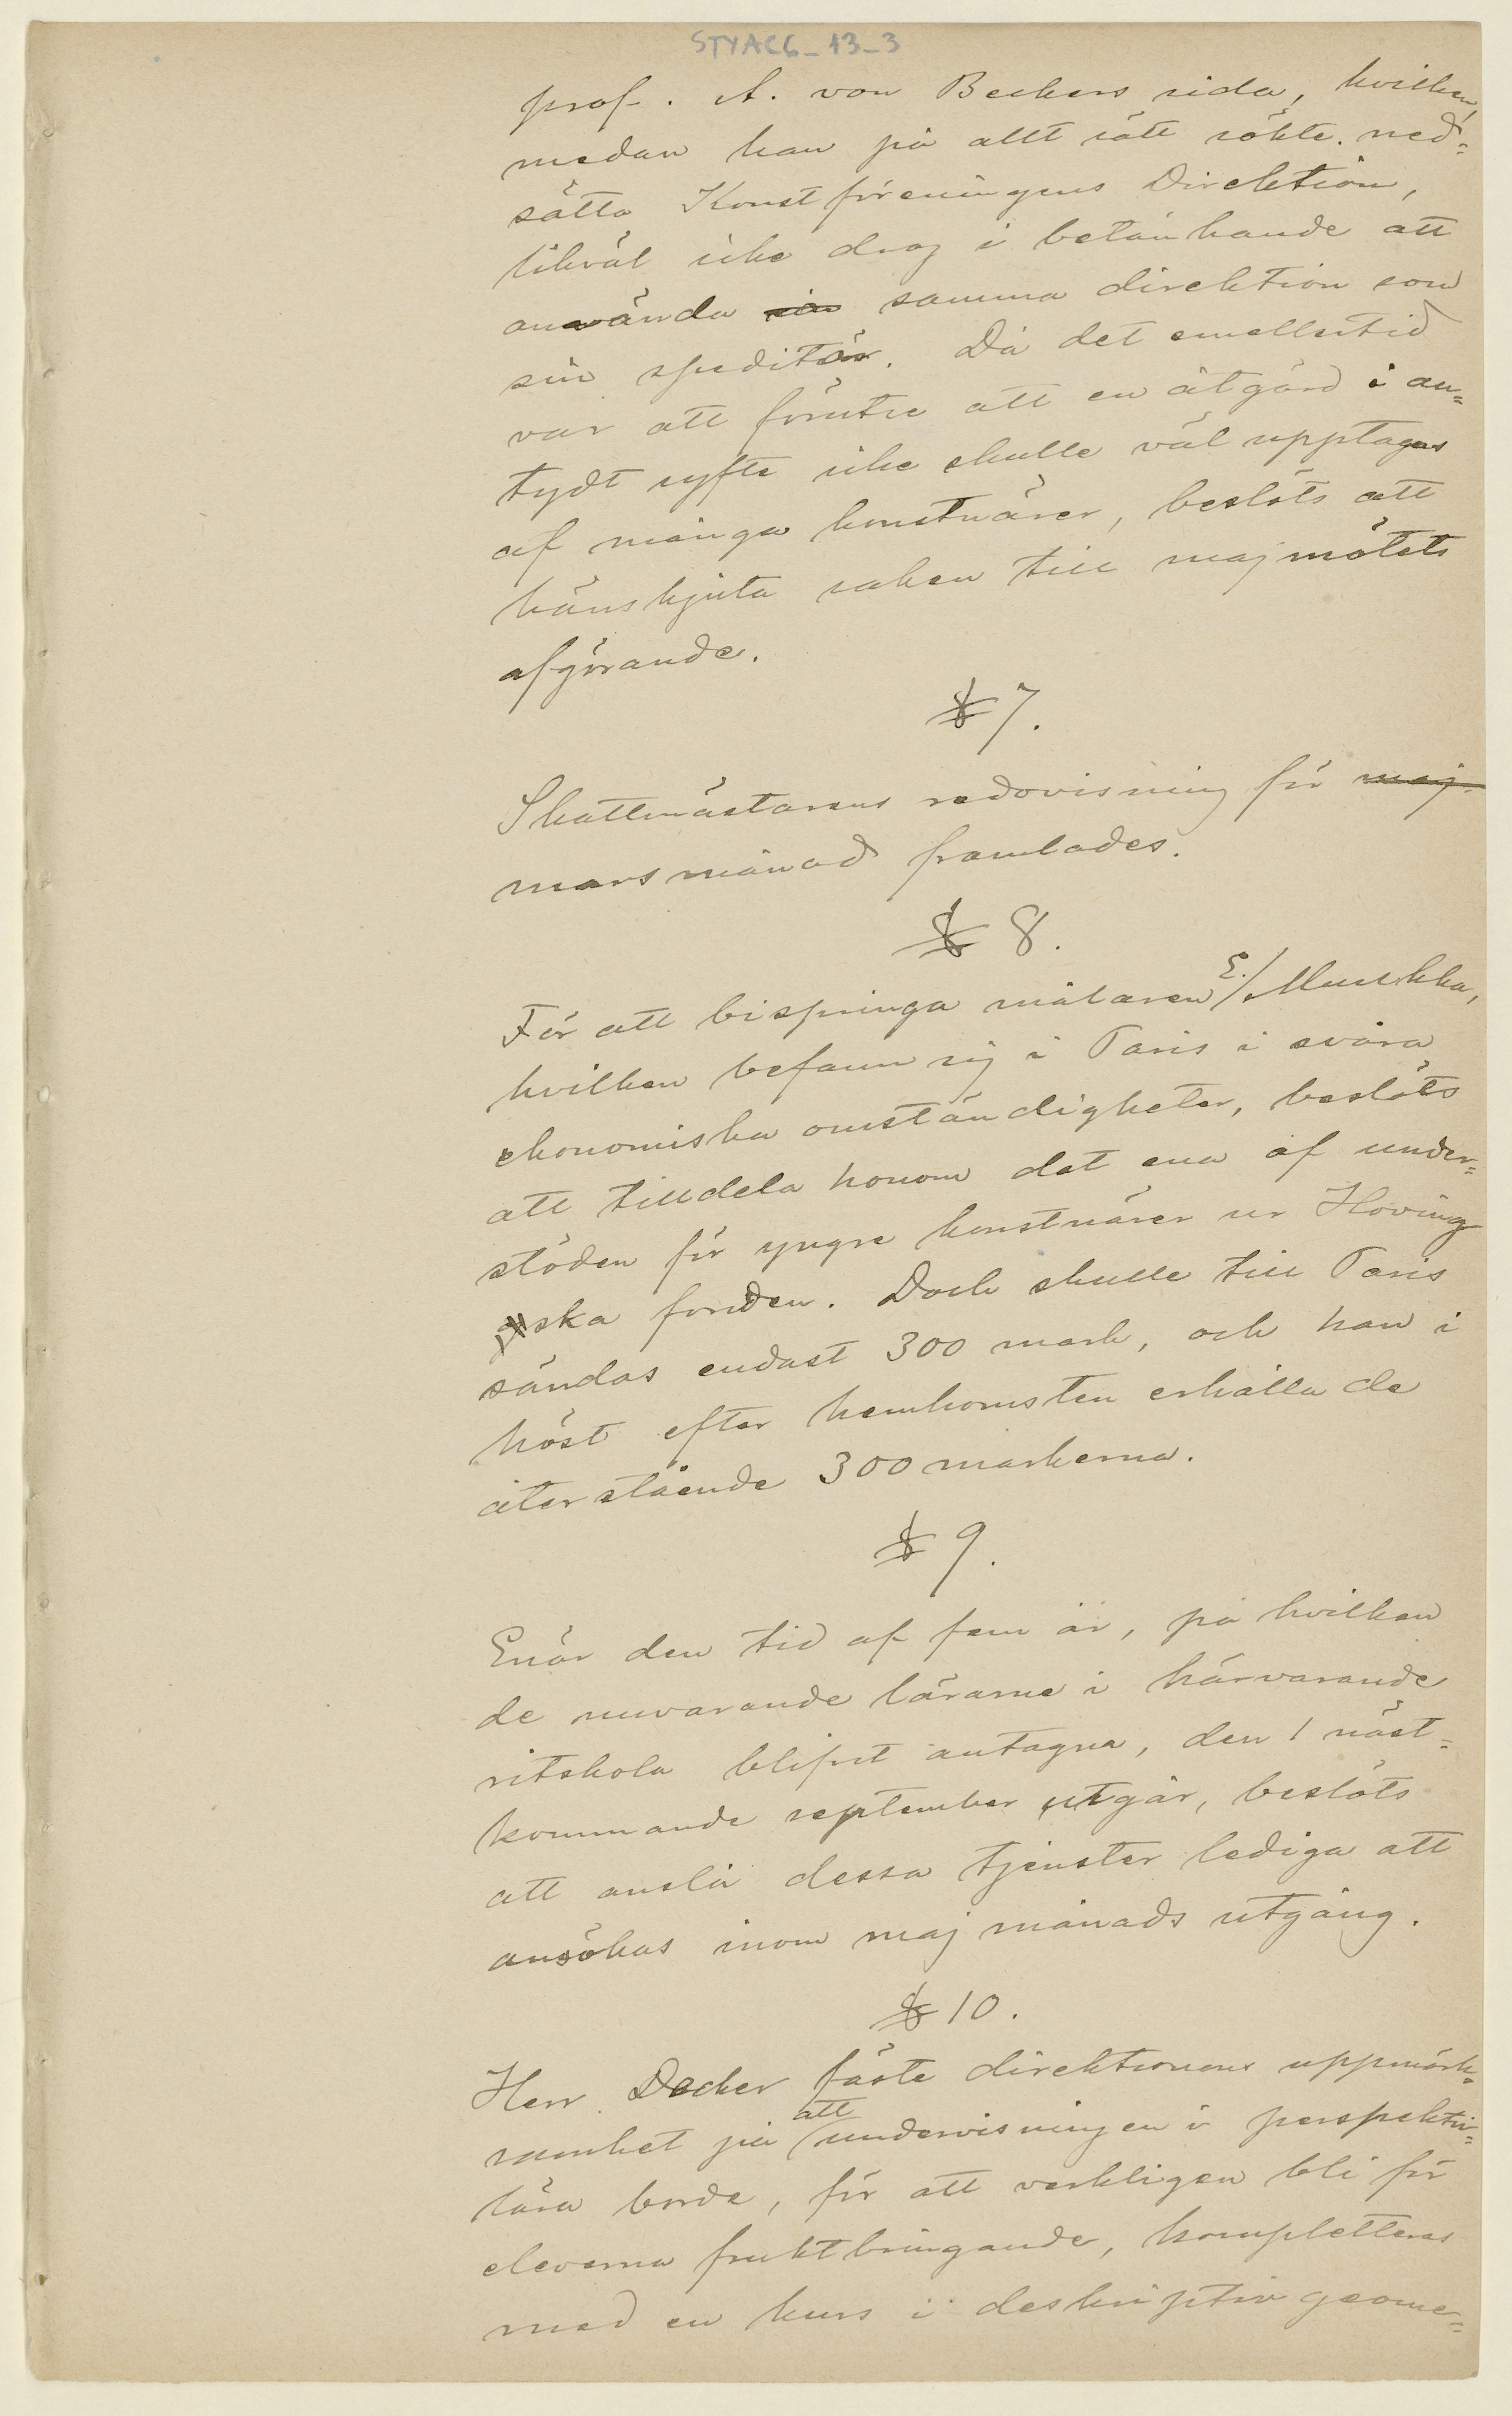 STYAC6_13_3
prof. A. von Beckers sida, hvilken,
medan han på allt sätt sökte ned=
sätta Konstföreningens Direktion,
likväl icke drog i betänkande att
använda sin samma direktion som
sin speditör. Då det emellertid
var att förutse att en åtgärd i an=
tydt syfte icke skulle väl upptagas
af många konstnärer, beslöts att
hänskjuta saken till majmötets
afgörande.
§ 7.
Skattmästarens redovisning för maj-
marsmånad framlades.
§ 8.
För att bispringa målaren E. Muukka,
hvilken befann sig i Paris i svåra
ekonomiska omständigheter, beslöts
att tilldela honom det ena af under=
stöden för yngre konstnärer ur Hoving
ska fonden. Dock skulle till Paris
sändas endast 300 mark, och han i
höst efter hemkomsten erhålla de
återstående 300 markerna.
§ 9.
Enär den tid af fem år, på hvilken
de nuvarande lärarne i härvarande
ritskola blifvit antagna, den 1 näst=
kommande september utgår, beslöts
att anslå dessa tjenster lediga att
ansökas inom maj månads utgång.
§ 10.
Herr Decker fäste direktionens uppmärk=
samhet på att undervisningen i perspektiv=
lära borde, för att verkligen bli för
eleverna fruktbringande, kompletteras
med en kurs i deskriptiv geome=